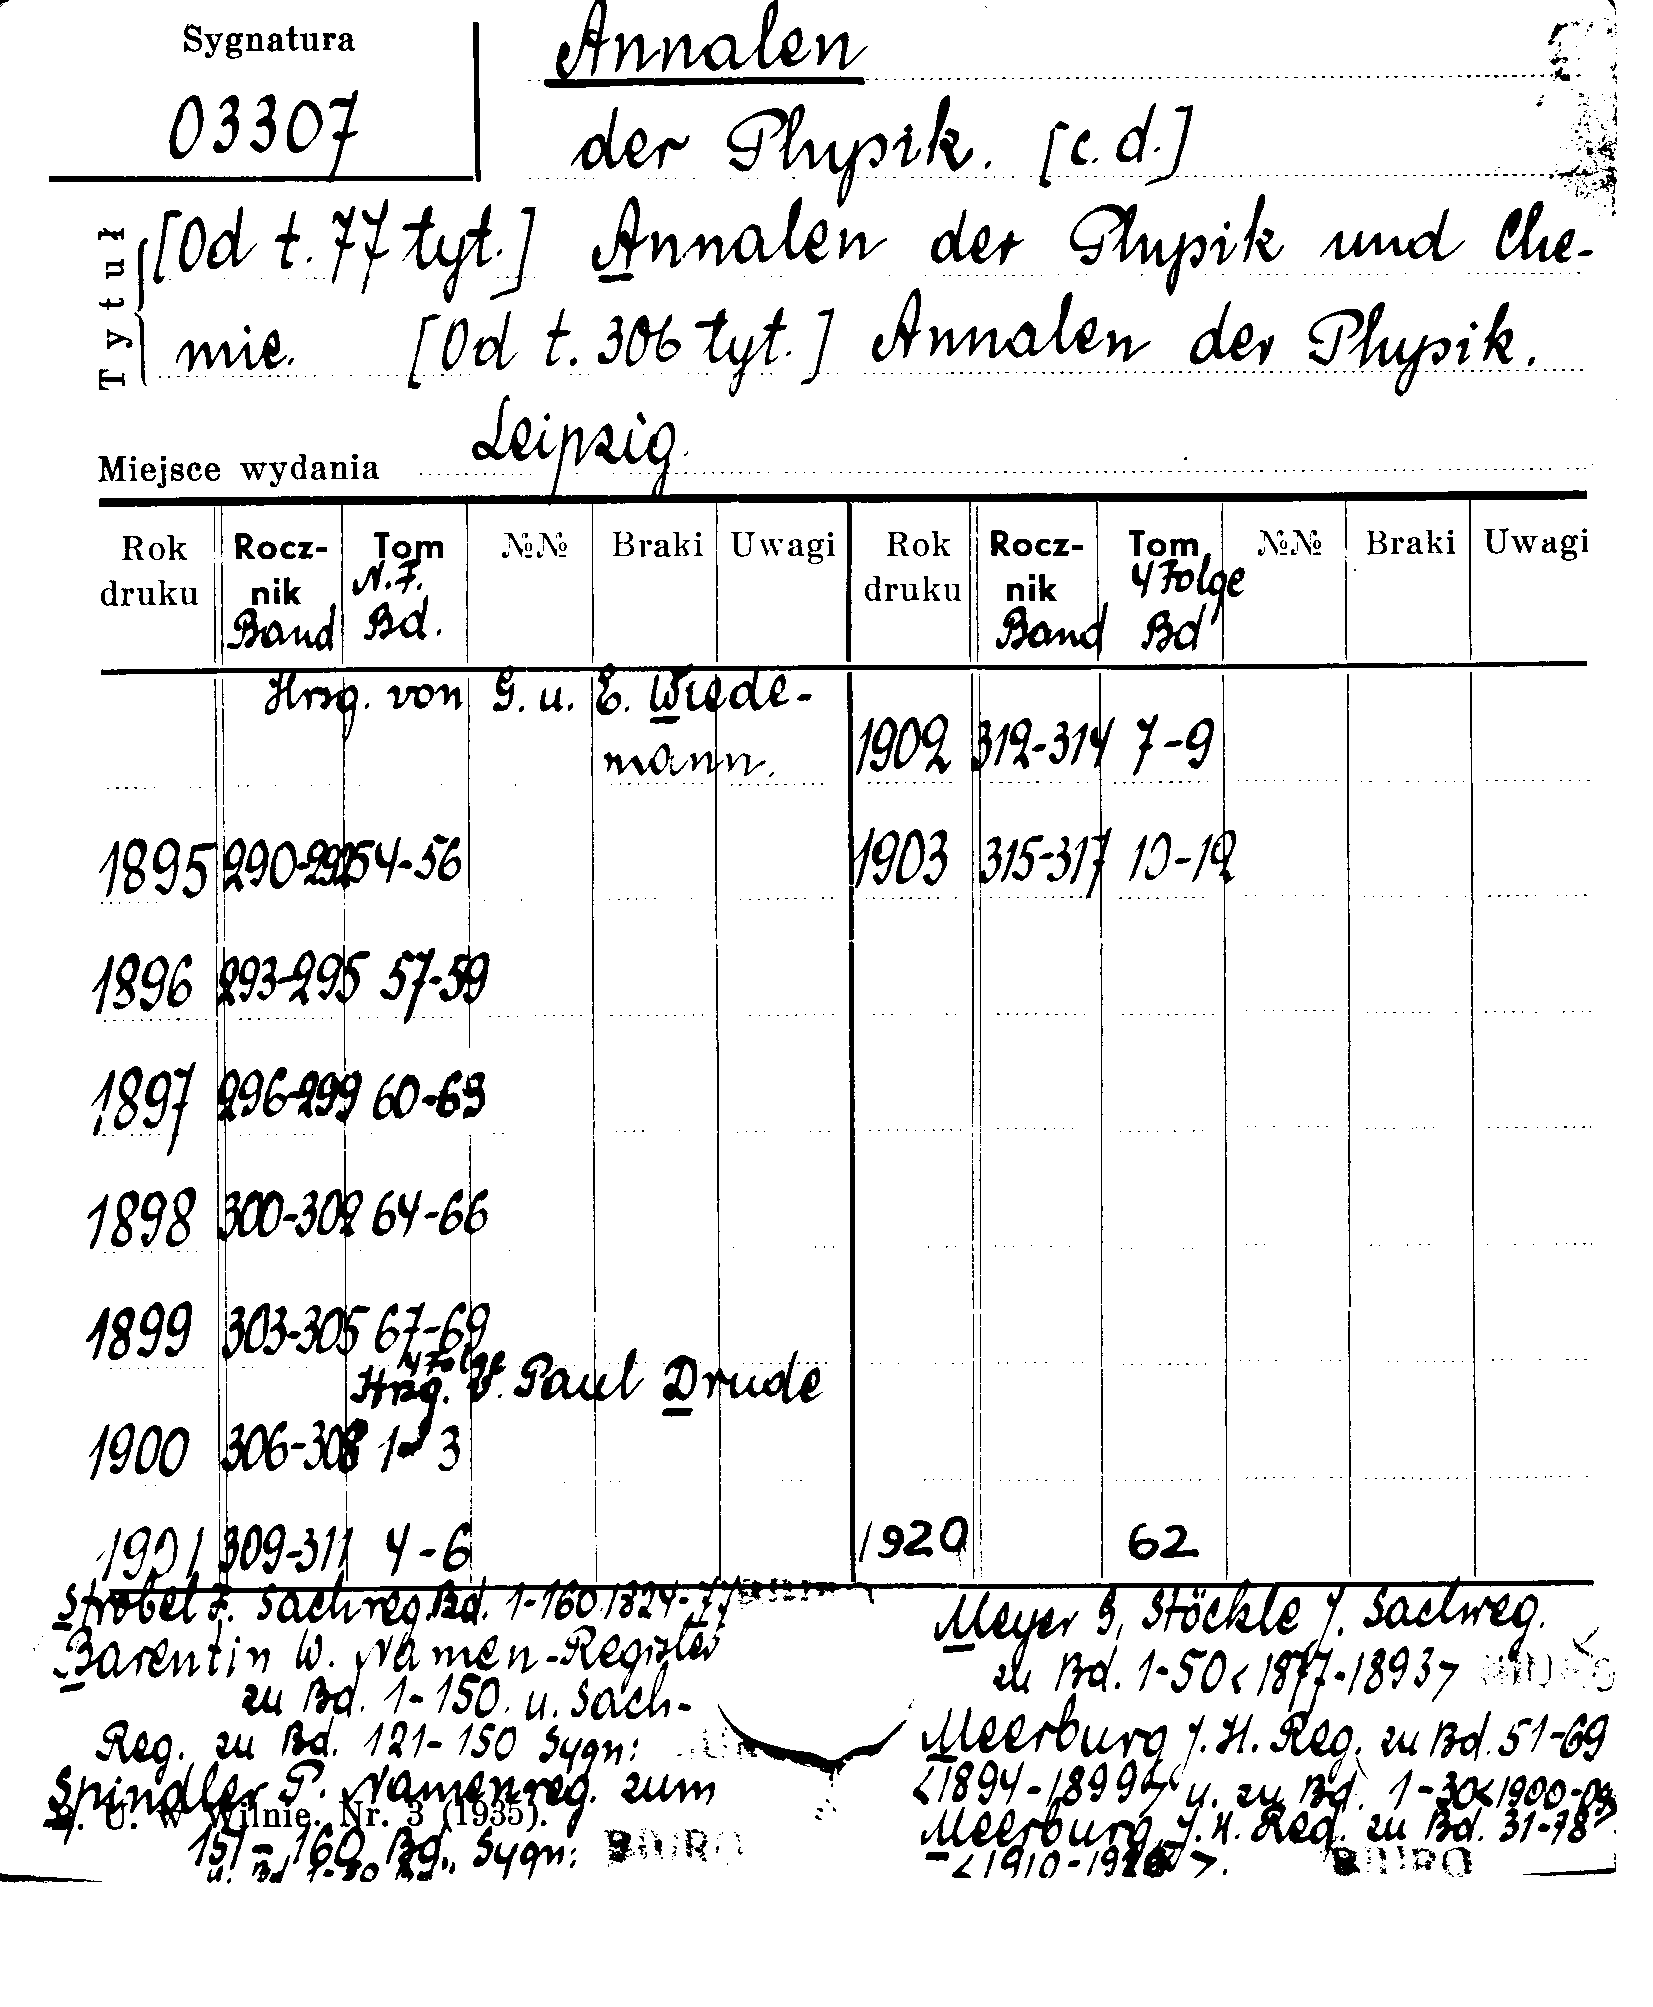 Sygnatura
03307
Annalen
der Physik. [c.d.]
Tytuł
[Od t. 77 tyt.] Annalen der Physik und Che-
mie. [Od t. 306 tyt.] Annalen der Physik.
Miejsce wydania Leipzig.
Rok druku Rocznik Band Tom N.F. Bd. №№ Braki Uwagi Rok druku Rocznik Band Tom 4 Folge Bd №№ Braki Uwagi
Hrsg. von G. u. E. Wiede-
mann.
1902 312-314 7-9
1895 290-292 54-56 1903 315-317 10-12
1896 293-295 57-59
1897 296-299 60-63
1898 300-302 64-66
1899 303-305 67-69
4 Folge
Hrsg. v. Paul Drude
1900 306-308 1-3
1901 309-311 4-6 1920 62
Strobel F. Sachreg. Bd. 1-160 1824-77
Barentin W. Namen-Register
zu Bd. 1-150. u. Sach-
Reg. zu Bd. 121-150 Sygn:
Spindler P. Namenreg. zum
U. w Wilnie. Nr. 3 (1935).
151-160 Bd. Sygn: BIURO
Meyer G, Stöckle J. Sachreg.
zu Bd. 1-50 <1877-1893> BIURO
Meerburg J. H. Reg. zu Bd. 51-69
<1894-1899> u. zu Bd. 1-30 <1900-09>
Meerburg, J. H. Reg. zu Bd. 31-78
BIURO